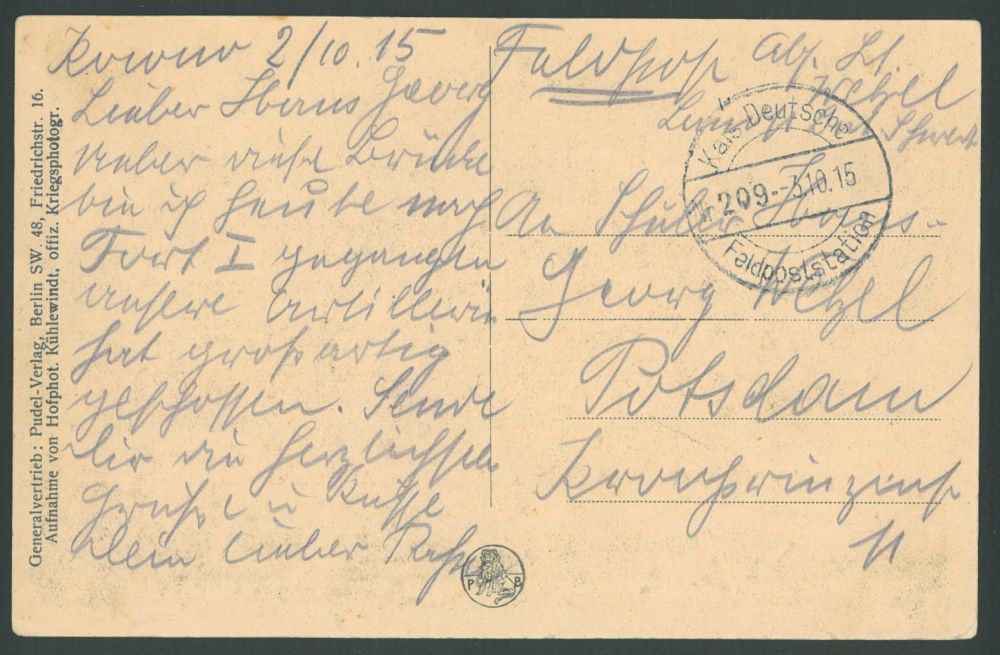 Kowno 2/10. 15
Lieber Hans Georg
Ueber diese Brücke
bin ich heute nach
Fort I gegangen
unsere Artillerie
hat großartig
geschossen. Sende
Dir die herzlichsten
Grüße u Küsse
Dein lieber
Feldpost
Abs. Lt.
Wetzel
Landst. Bat.
An Schüler Hans-
Georg Wetzel
Potsdam
Kronprinzenstr
11
Kais. Deutsche
Nr 209 - 3.10.15
Feldpoststation
Generalvertrieb: Pudel-Verlag, Berlin SW. 48, Friedrichstr. 16.
Aufnahme von Hofphot. Kühlewindt, offiz. Kriegsphotogr.
P B